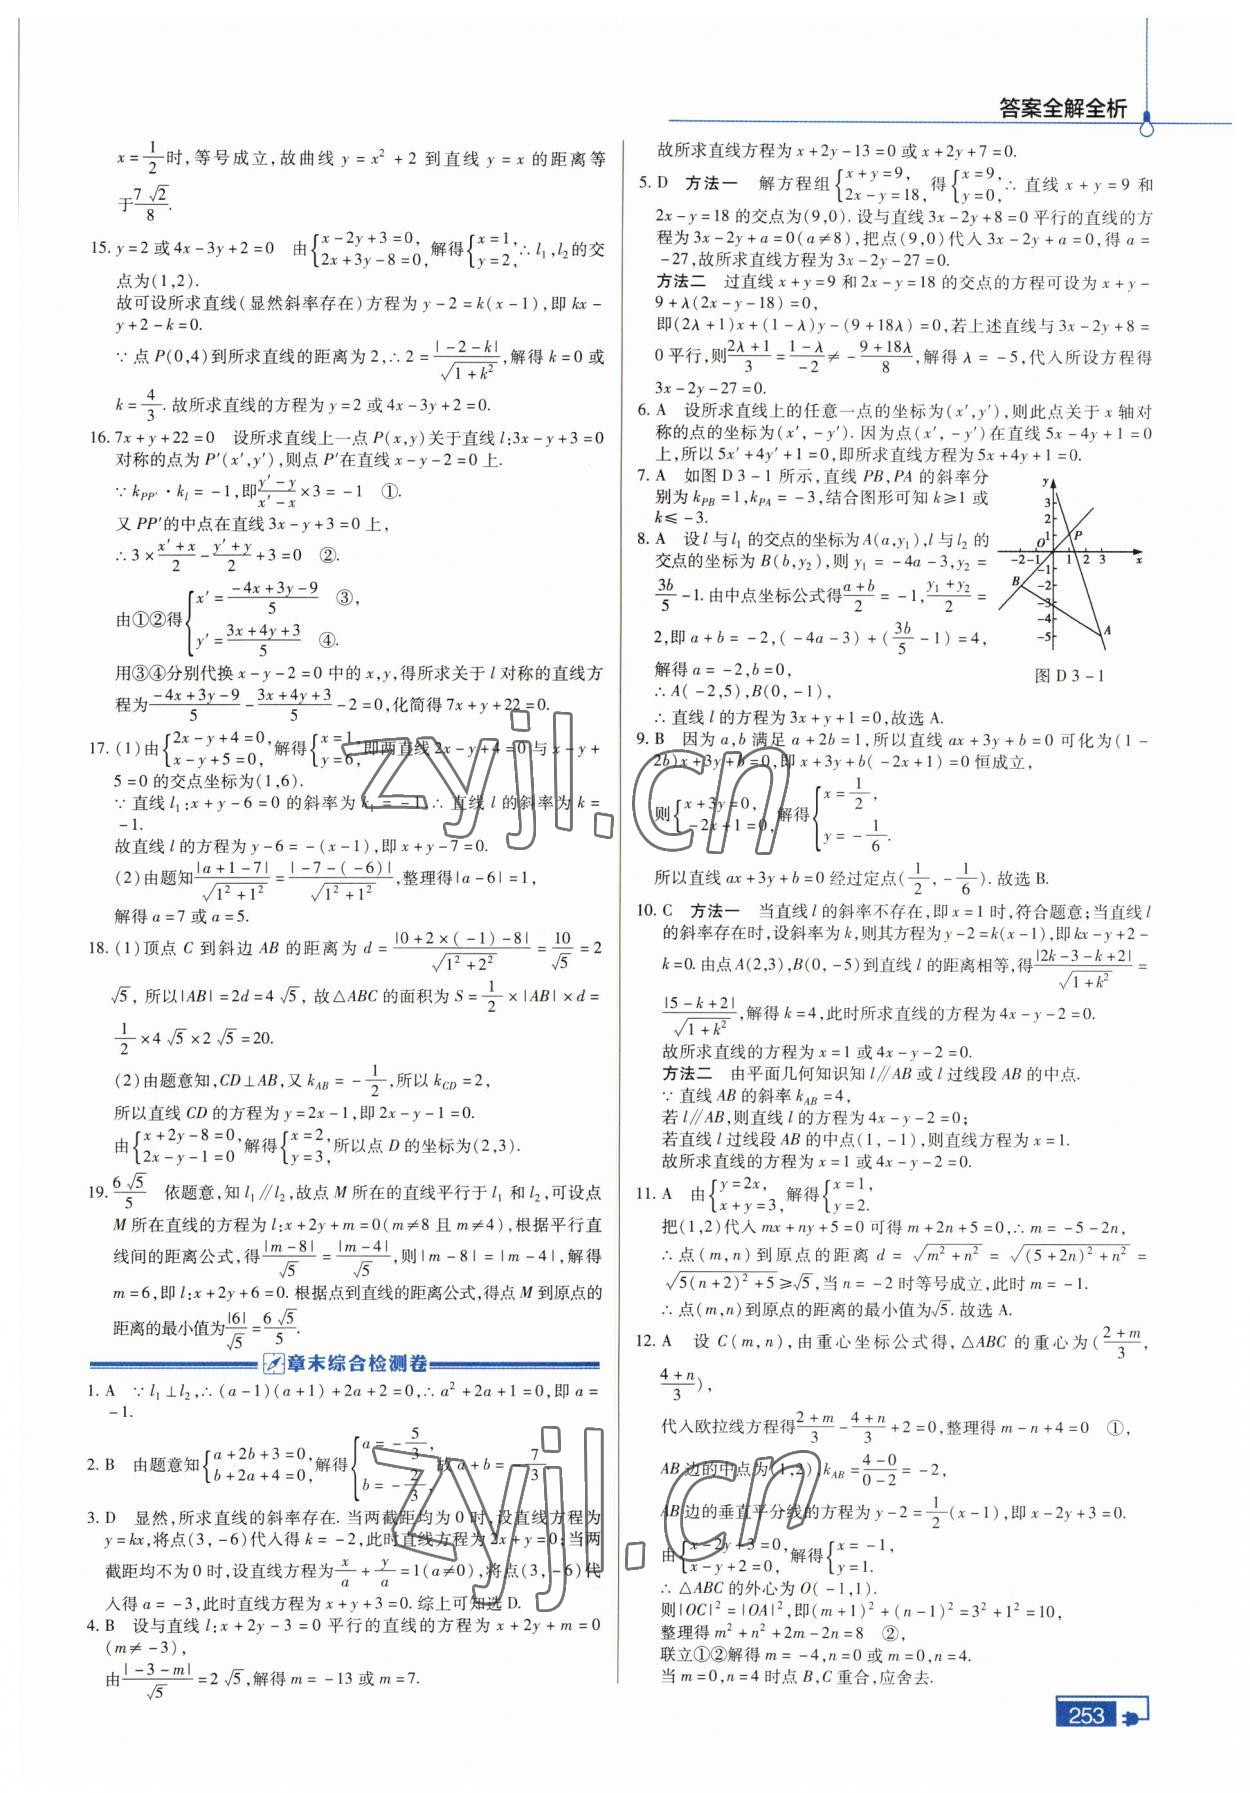 答案全解全析
x=1/2时,等号成立,故曲线 y=x²+2 到直线 y=x 的距离等
于7√2/8.
15. y=2 或 4x-3y+2=0　由{x-2y+3=0, 2x+3y-8=0,解得{x=1, y=2,∴l₁,l₂的交
点为(1,2).
故可设所求直线(显然斜率存在)方程为 y-2=k(x-1),即 kx-
y+2-k=0.
∵点 P(0,4)到所求直线的距离为2,∴2=|-2-k|/√(1+k²),解得 k=0 或
k=4/3.故所求直线的方程为 y=2 或 4x-3y+2=0.
16. 7x+y+22=0　设所求直线上一点 P(x,y)关于直线 l:3x-y+3=0
对称的点为 P'(x',y'),则点 P'在直线 x-y-2=0 上.
∵k_PP'·k_l=-1,即(y'-y)/(x'-x)×3=-1　①.
又 PP'的中点在直线 3x-y+3=0 上,
∴3×(x'+x)/2-(y'+y)/2+3=0　②.
由①②得{x'=(-4x+3y-9)/5　③, y'=(3x+4y+3)/5　④.
用③④分别代换 x-y-2=0 中的 x,y,得所求关于 l 对称的直线方
程为(-4x+3y-9)/5-(3x+4y+3)/5-2=0,化简得 7x+y+22=0.
17. (1)由{2x-y+4=0, x-y+5=0,解得{x=1, y=6,即两直线 2x-y+4=0 与 x-y+
5=0 的交点坐标为(1,6).
∵直线 l₁:x+y-6=0 的斜率为 k₁=-1,∴直线 l 的斜率为 k=
-1.
故直线 l 的方程为 y-6=-(x-1),即 x+y-7=0.
(2)由题知|a+1-7|/√(1²+1²)=|-7-(-6)|/√(1²+1²),整理得|a-6|=1,
解得 a=7 或 a=5.
18. (1)顶点 C 到斜边 AB 的距离为 d=|0+2×(-1)-8|/√(1²+2²)=10/√5=2
√5,所以|AB|=2d=4√5,故△ABC 的面积为 S=1/2×|AB|×d=
1/2×4√5×2√5=20.
(2)由题意知,CD⊥AB,又 k_AB=-1/2,所以 k_CD=2,
所以直线 CD 的方程为 y=2x-1,即 2x-y-1=0.
由{x+2y-8=0, 2x-y-1=0解得{x=2, y=3,所以点 D 的坐标为(2,3).
19. 6√5/5　依题意,知 l₁∥l₂,故点 M 所在的直线平行于 l₁ 和 l₂,可设点
M 所在直线的方程为 l:x+2y+m=0(m≠8 且 m≠4),根据平行直
线间的距离公式,得|m-8|/√5=|m-4|/√5,则|m-8|=|m-4|,解得
m=6,即 l:x+2y+6=0.根据点到直线的距离公式,得点 M 到原点的
距离的最小值为|6|/√5=6√5/5.
章末综合检测卷
1. A　∵l₁⊥l₂,∴(a-1)(a+1)+2a+2=0,∴a²+2a+1=0,即 a=
-1.
2. B　由题意知{a+2b+3=0, b+2a+4=0,解得{a=-5/3, b=-2/3,故 a+b=-7/3.
3. D　显然,所求直线的斜率存在.当两截距均为0时,设直线方程为
y=kx,将点(3,-6)代入得 k=-2,此时直线方程为 2x+y=0;当两
截距均不为0时,设直线方程为x/a+y/a=1(a≠0),将点(3,-6)代
入得 a=-3,此时直线方程为 x+y+3=0.综上可知选 D.
4. B　设与直线 l:x+2y-3=0 平行的直线的方程为 x+2y+m=0
(m≠-3),
由|-3-m|/√5=2√5,解得 m=-13 或 m=7.
故所求直线方程为 x+2y-13=0 或 x+2y+7=0.
5. D　方法一　解方程组{x+y=9, 2x-y=18,得{x=9, y=0,∴直线 x+y=9 和
2x-y=18 的交点为(9,0).设与直线 3x-2y+8=0 平行的直线的方
程为 3x-2y+a=0(a≠8),把点(9,0)代入 3x-2y+a=0,得 a=
-27,故所求直线方程为 3x-2y-27=0.
方法二　过直线 x+y=9 和 2x-y=18 的交点的方程可设为 x+y-
9+λ(2x-y-18)=0,
即(2λ+1)x+(1-λ)y-(9+18λ)=0,若上述直线与 3x-2y+8=
0 平行,则(2λ+1)/3=(1-λ)/-2≠-(9+18λ)/8,解得 λ=-5,代入所设方程得
3x-2y-27=0.
6. A　设所求直线上的任意一点的坐标为(x',y'),则此点关于 x 轴对
称的点的坐标为(x',-y').因为点(x',-y')在直线 5x-4y+1=0
上,所以 5x'+4y'+1=0,即所求直线方程为 5x+4y+1=0.
7. A　如图 D 3-1 所示,直线 PB,PA 的斜率分
别为 k_PB=1,k_PA=-3,结合图形可知 k≥1 或
k≤-3.
8. A　设 l 与 l₁ 的交点的坐标为 A(a,y₁),l 与 l₂ 的
交点的坐标为 B(b,y₂),则 y₁=-4a-3,y₂=
3b/5-1.由中点坐标公式得(a+b)/2=-1,(y₁+y₂)/2=
2,即 a+b=-2,(-4a-3)+(3b/5-1)=4,
解得 a=-2,b=0,
∴A(-2,5),B(0,-1),
∴直线 l 的方程为 3x+y+1=0,故选 A.
y
3
2
1
O
P
-2 -1 1 2 3 x
-1
-2
-3
-4
-5
B
A
图 D 3-1
9. B　因为 a,b 满足 a+2b=1,所以直线 ax+3y+b=0 可化为(1-
2b)x+3y+b=0,即 x+3y+b(-2x+1)=0 恒成立,
则{x+3y=0, -2x+1=0,解得{x=1/2, y=-1/6.
所以直线 ax+3y+b=0 经过定点(1/2,-1/6).故选 B.
10. C　方法一　当直线 l 的斜率不存在,即 x=1 时,符合题意;当直线 l
的斜率存在时,设斜率为 k,则其方程为 y-2=k(x-1),即 kx-y+2-
k=0.由点 A(2,3),B(0,-5)到直线 l 的距离相等,得|2k-3-k+2|/√(1+k²)=
|5-k+2|/√(1+k²),解得 k=4,此时所求直线的方程为 4x-y-2=0.
故所求直线的方程为 x=1 或 4x-y-2=0.
方法二　由平面几何知识知 l∥AB 或 l 过线段 AB 的中点.
∵直线 AB 的斜率 k_AB=4,
若 l∥AB,则直线 l 的方程为 4x-y-2=0;
若直线 l 过线段 AB 的中点(1,-1),则直线方程为 x=1.
故所求直线的方程为 x=1 或 4x-y-2=0.
11. A　由{y=2x, x+y=3,解得{x=1, y=2.
把(1,2)代入 mx+ny+5=0 可得 m+2n+5=0,∴m=-5-2n,
∴点(m,n)到原点的距离 d=√(m²+n²)=√((5+2n)²+n²)=
√(5(n+2)²+5)≥√5,当 n=-2 时等号成立,此时 m=-1.
∴点(m,n)到原点的距离的最小值为√5.故选 A.
12. A　设 C(m,n),由重心坐标公式得,△ABC 的重心为((2+m)/3,
(4+n)/3),
代入欧拉线方程得(2+m)/3-(4+n)/3+2=0,整理得 m-n+4=0　①,
AB 边的中点为(1,2),k_AB=(4-0)/(0-2)=-2,
AB 边的垂直平分线的方程为 y-2=1/2(x-1),即 x-2y+3=0.
由{x-2y+3=0, x-y+2=0,解得{x=-1, y=1.
∴△ABC 的外心为 O(-1,1).
则|OC|²=|OA|²,即(m+1)²+(n-1)²=3²+1²=10,
整理得 m²+n²+2m-2n=8　②,
联立①②解得 m=-4,n=0 或 m=0,n=4.
当 m=0,n=4 时点 B,C 重合,应舍去.
253
zyjl.cn
zyjl.cn